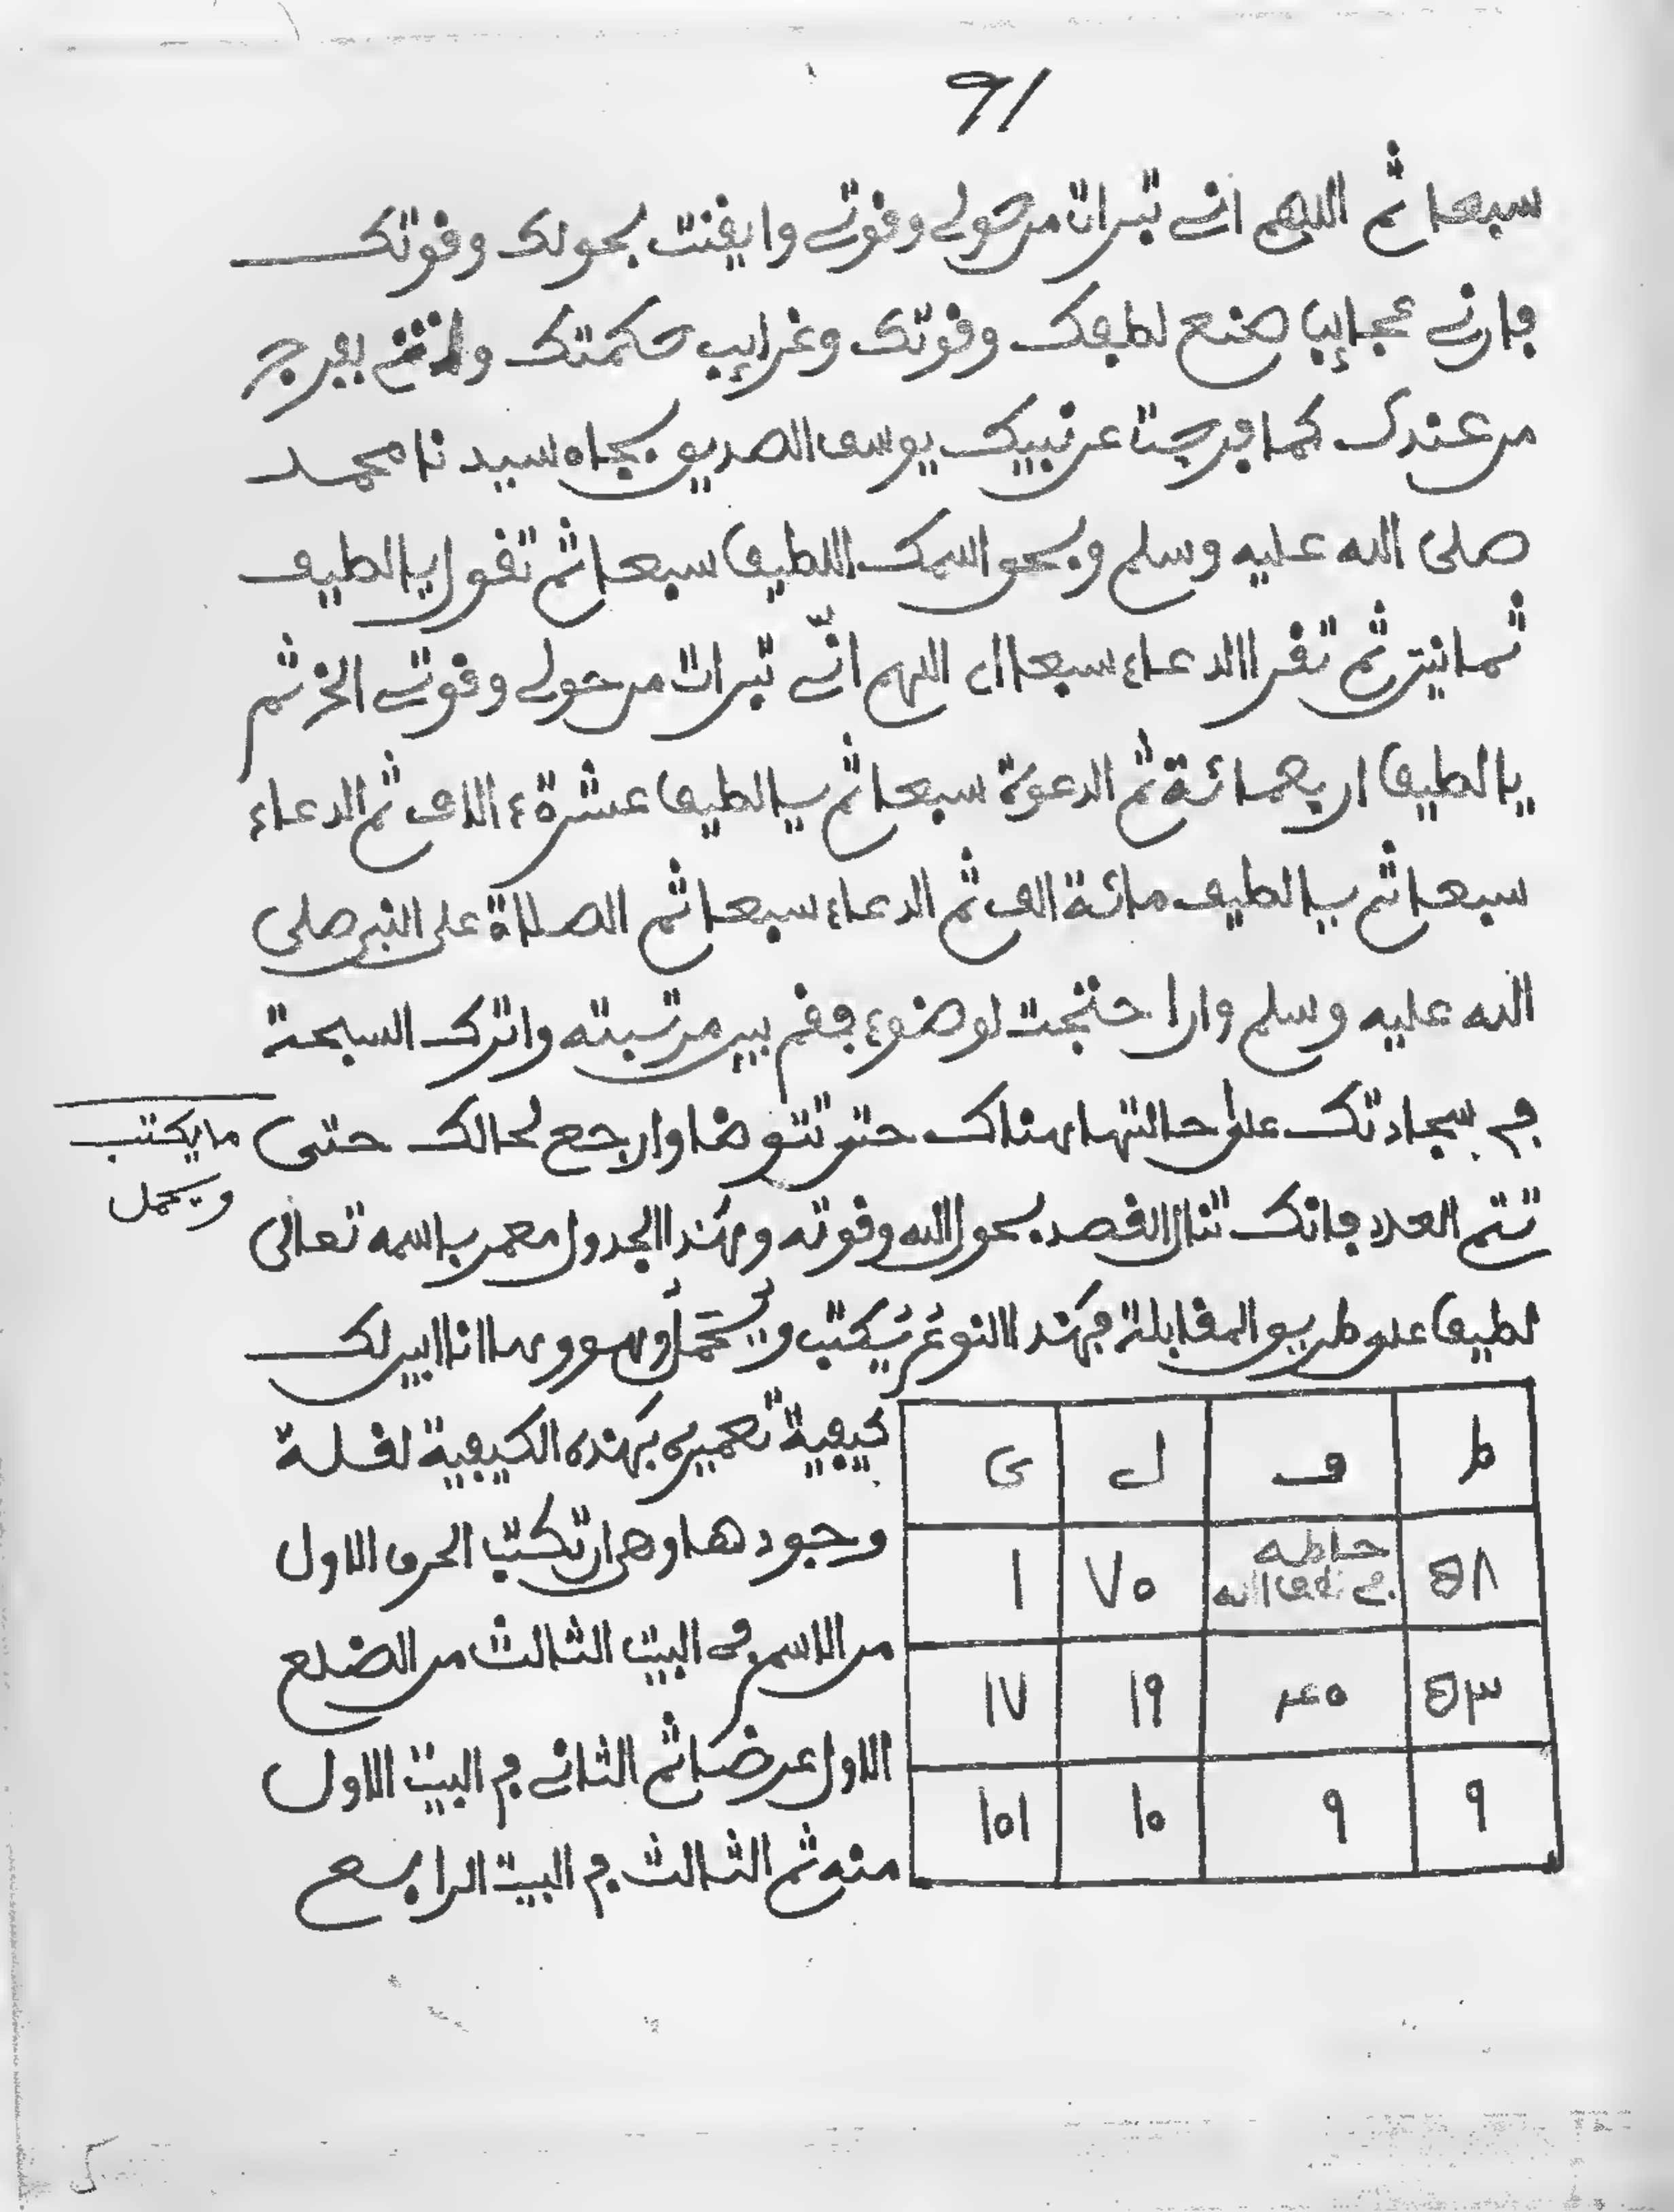 91
سبعا ثم اللهم اني تبرات من حولي وقوتي وايقنت بحولك وقوتك
فارني عجايب صنع لطفك وقوتك وغرايب حكمتك بفرج
من عندك كما فرجت عن نبيك يوسف الصديق بجاه سيدنا محمد
صلى الله عليه وسلم وبحق اسمك اللطيف سبعا ثم تقول يالطيف
ثمانين ثم تقرا الدعاء سبعا اي اللهم انّي تبرات من حولي وقوتي الخ ثم
يالطيف اربعمائة ثم الدعوة سبعا ثم يالطيف عشرة ءالاف ثم الدعاء
سبعا ثم يالطيف مائة الف ثم الدعاء سبعا ثم الصلاة على النبي صلى
الله عليه وسلم وان احتجت لوضوء فقم بين مرتبته واترك السبحة
في سجادتك على حالتها هناك حتى تتوضا وارجع لحالك حتى
ما يكتب
ويحمل
تتم العدد فانك تنال القصد بحول الله وقوته وهذا الجدول معمر باسمه تعالى
لطيف على طريق المقابلة فهذا النوع يكتب ويحمل وهو وها انا ابين لك
كيفية تعميره بهذه الكيفية لقلة
وجودها وهي ان تكتب الحرف الاول
من الاسم في البيت الثالث من الضلع
الاول عرضا ثم الثاني في البيت الاول
منه ثم الثالث في البيت الرابع
ط ف ل ى
٥٨ ٧٥ ١
٥٣ ١٩ ١٧
٩ ٩ ١٥ ١٥١